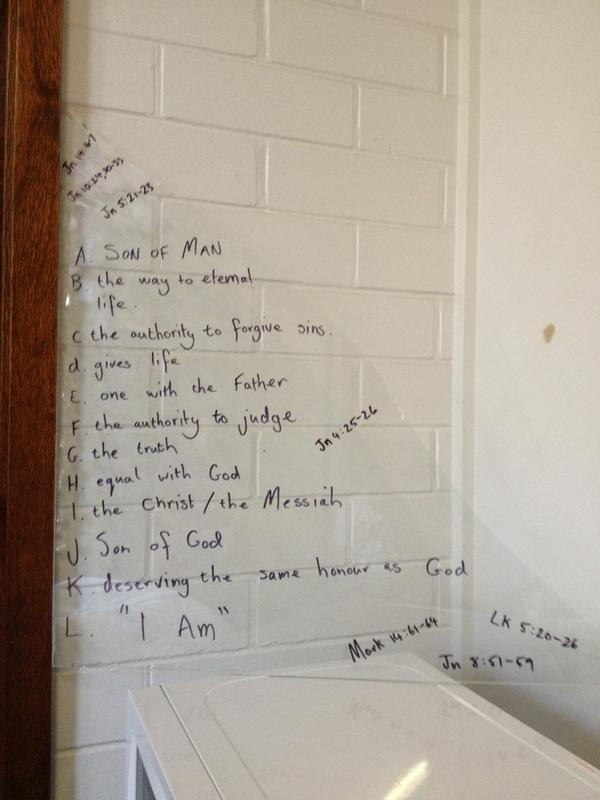 Jn 14:6-7
Jn 10:24,30-33
Jn 5:21-23
A. SON OF MAN
B. the way to eternal
life.
C the authority to forgive sins.
d. gives life
E. one with the Father
F. the authority to judge
Jn 4:25-26
G. the truth
H. equal with God
I. the Christ / the Messiah
J. Son of God
K. deserving the same honour as God
L. "I Am"
Mark 14:61-64
LK 5:20-26
Jn 8:51-59